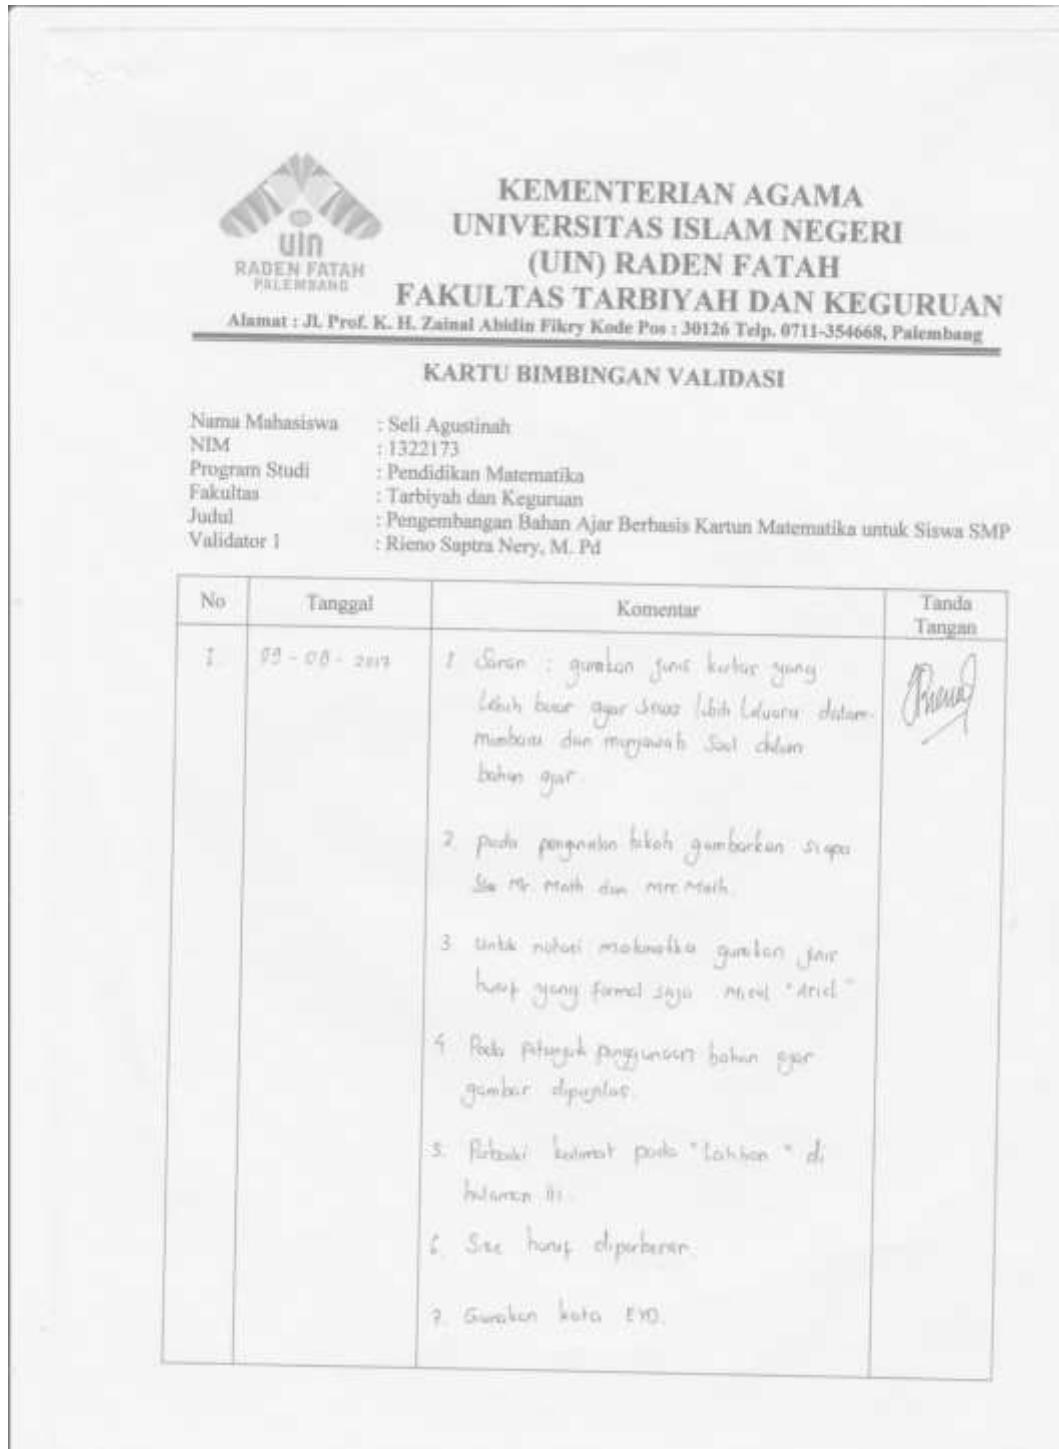 uin
RADEN FATAH
PALEMBANG
KEMENTERIAN AGAMA
UNIVERSITAS ISLAM NEGERI
(UIN) RADEN FATAH
FAKULTAS TARBIYAH DAN KEGURUAN
Alamat : Jl. Prof. K. H. Zainal Abidin Fikry Kode Pos : 30126 Telp. 0711-354668, Palembang
KARTU BIMBINGAN VALIDASI
Nama Mahasiswa : Seli Agustinah
NIM : 1322173
Program Studi : Pendidikan Matematika
Fakultas : Tarbiyah dan Keguruan
Judul : Pengembangan Bahan Ajar Berbasis Kartun Matematika untuk Siswa SMP
Validator 1 : Rieno Saptra Nery, M. Pd
No Tanggal Komentar Tanda Tangan
1. 09 - 08 - 2017 1. Saran : gunakan jenis kertas yang
lebih besar agar siswa lebih leluasa dalam
membaca dan menjawab soal dalam
bahan ajar.
2. pada pengenalan tokoh gambarkan siapa
Mr. Math dan Mrr. Math.
3. Untuk notasi matematika gunakan jenis
huruf yang formal saja misal "Ariel"
4. Pada petunjuk penggunaan bahan ajar
gambar diperjelas.
5. Perbaiki kalimat pada "Latihan" di
halaman
6. Size huruf diperbesar.
7. Gunakan kata EYD.